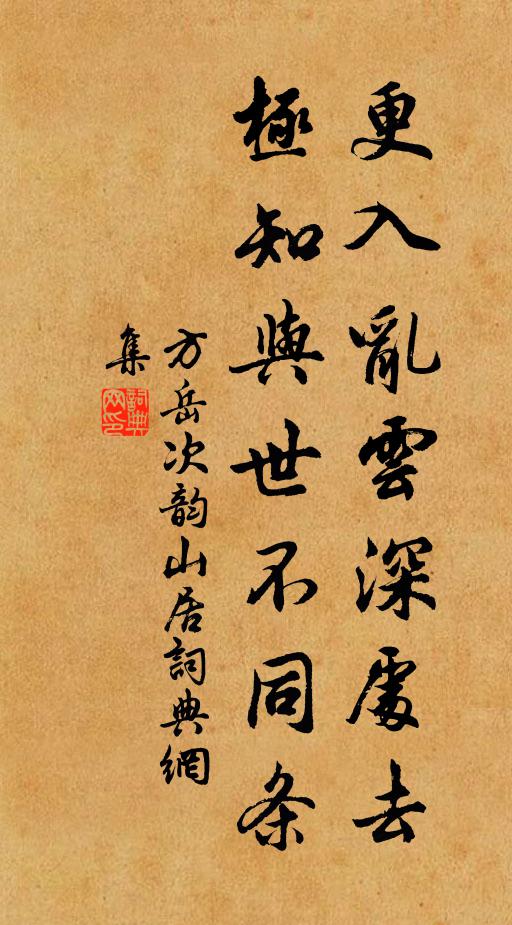 更入亂雲深處去
極知與世不同条
方岳次韵山居詞典網
集
詞典网印